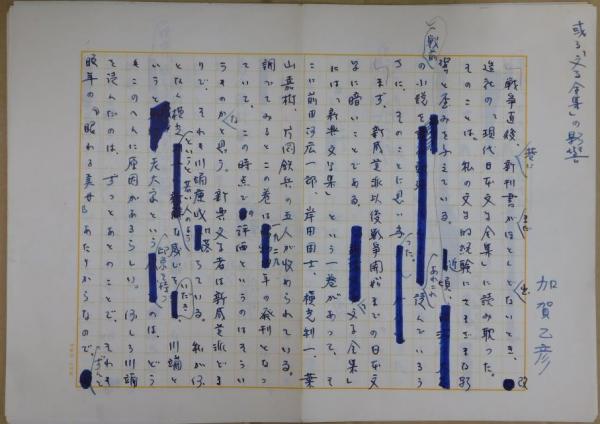 或る「文学全集」の影響
加賀乙彦
戦争直後、新刊書がほとんどないとき、改
造社の『現代日本文学全集』に読み耽った。
そのことは、私の文学的経験にさまざまな影
響と歪みを与えている。近頃、
戦前の小説を あれこれ 読んでいるう
ちに、そのことに思い
まず、新感覚派以後戦争開始までの日本文
学に暗いことである。 文学全集
には「新興文学集」という一巻があって、そ
こに前田河広一郎、岸田国士、横光利一、葉
山嘉樹、片岡鉄兵の五人が収められている。
調べてみるとこの巻は一九二九年の発刊となっ
ていて、この時点での評価というのはそうい
うものかと思う。新興文学者は新感覚派どま
りで、それも川端康成は落ちている。私がな
んとなく横光 というと若い人のよう な感じを いだき、川端と
いうと 老大家という 印象を持つ のは、どう
もこのへんに原因があるらしい。 川端
を読んだのは、ずっとあとのことで、それも
晩年の『眠れる美女』あたりからなので